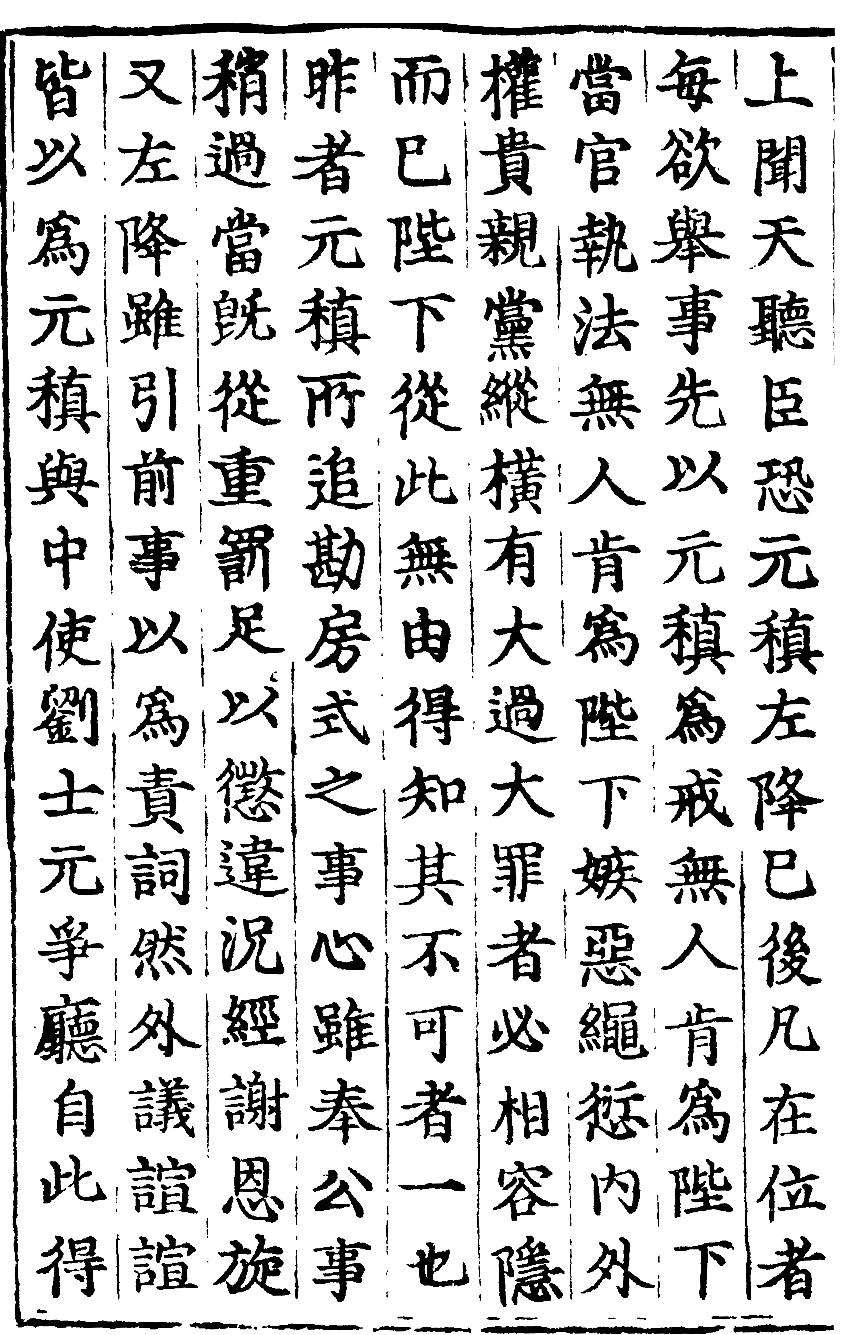 上聞天聽臣恐元稹左降已後凡在位者
每欲舉事先以元稹爲戒無人肯爲陛下
當官執法無人肯爲陛下嫉惡繩愆内外
權貴親黨縱横有大過大罪者必相容隱
而已陛下從此無由得知其不可者一也
昨者元稹所追勘房式之事心雖奉公事
稍過當旣從重罰足以懲違況經謝恩旋
又左降雖引前事以爲責詞然外議諠諠
皆以爲元稹與中使劉士元爭廳自此得